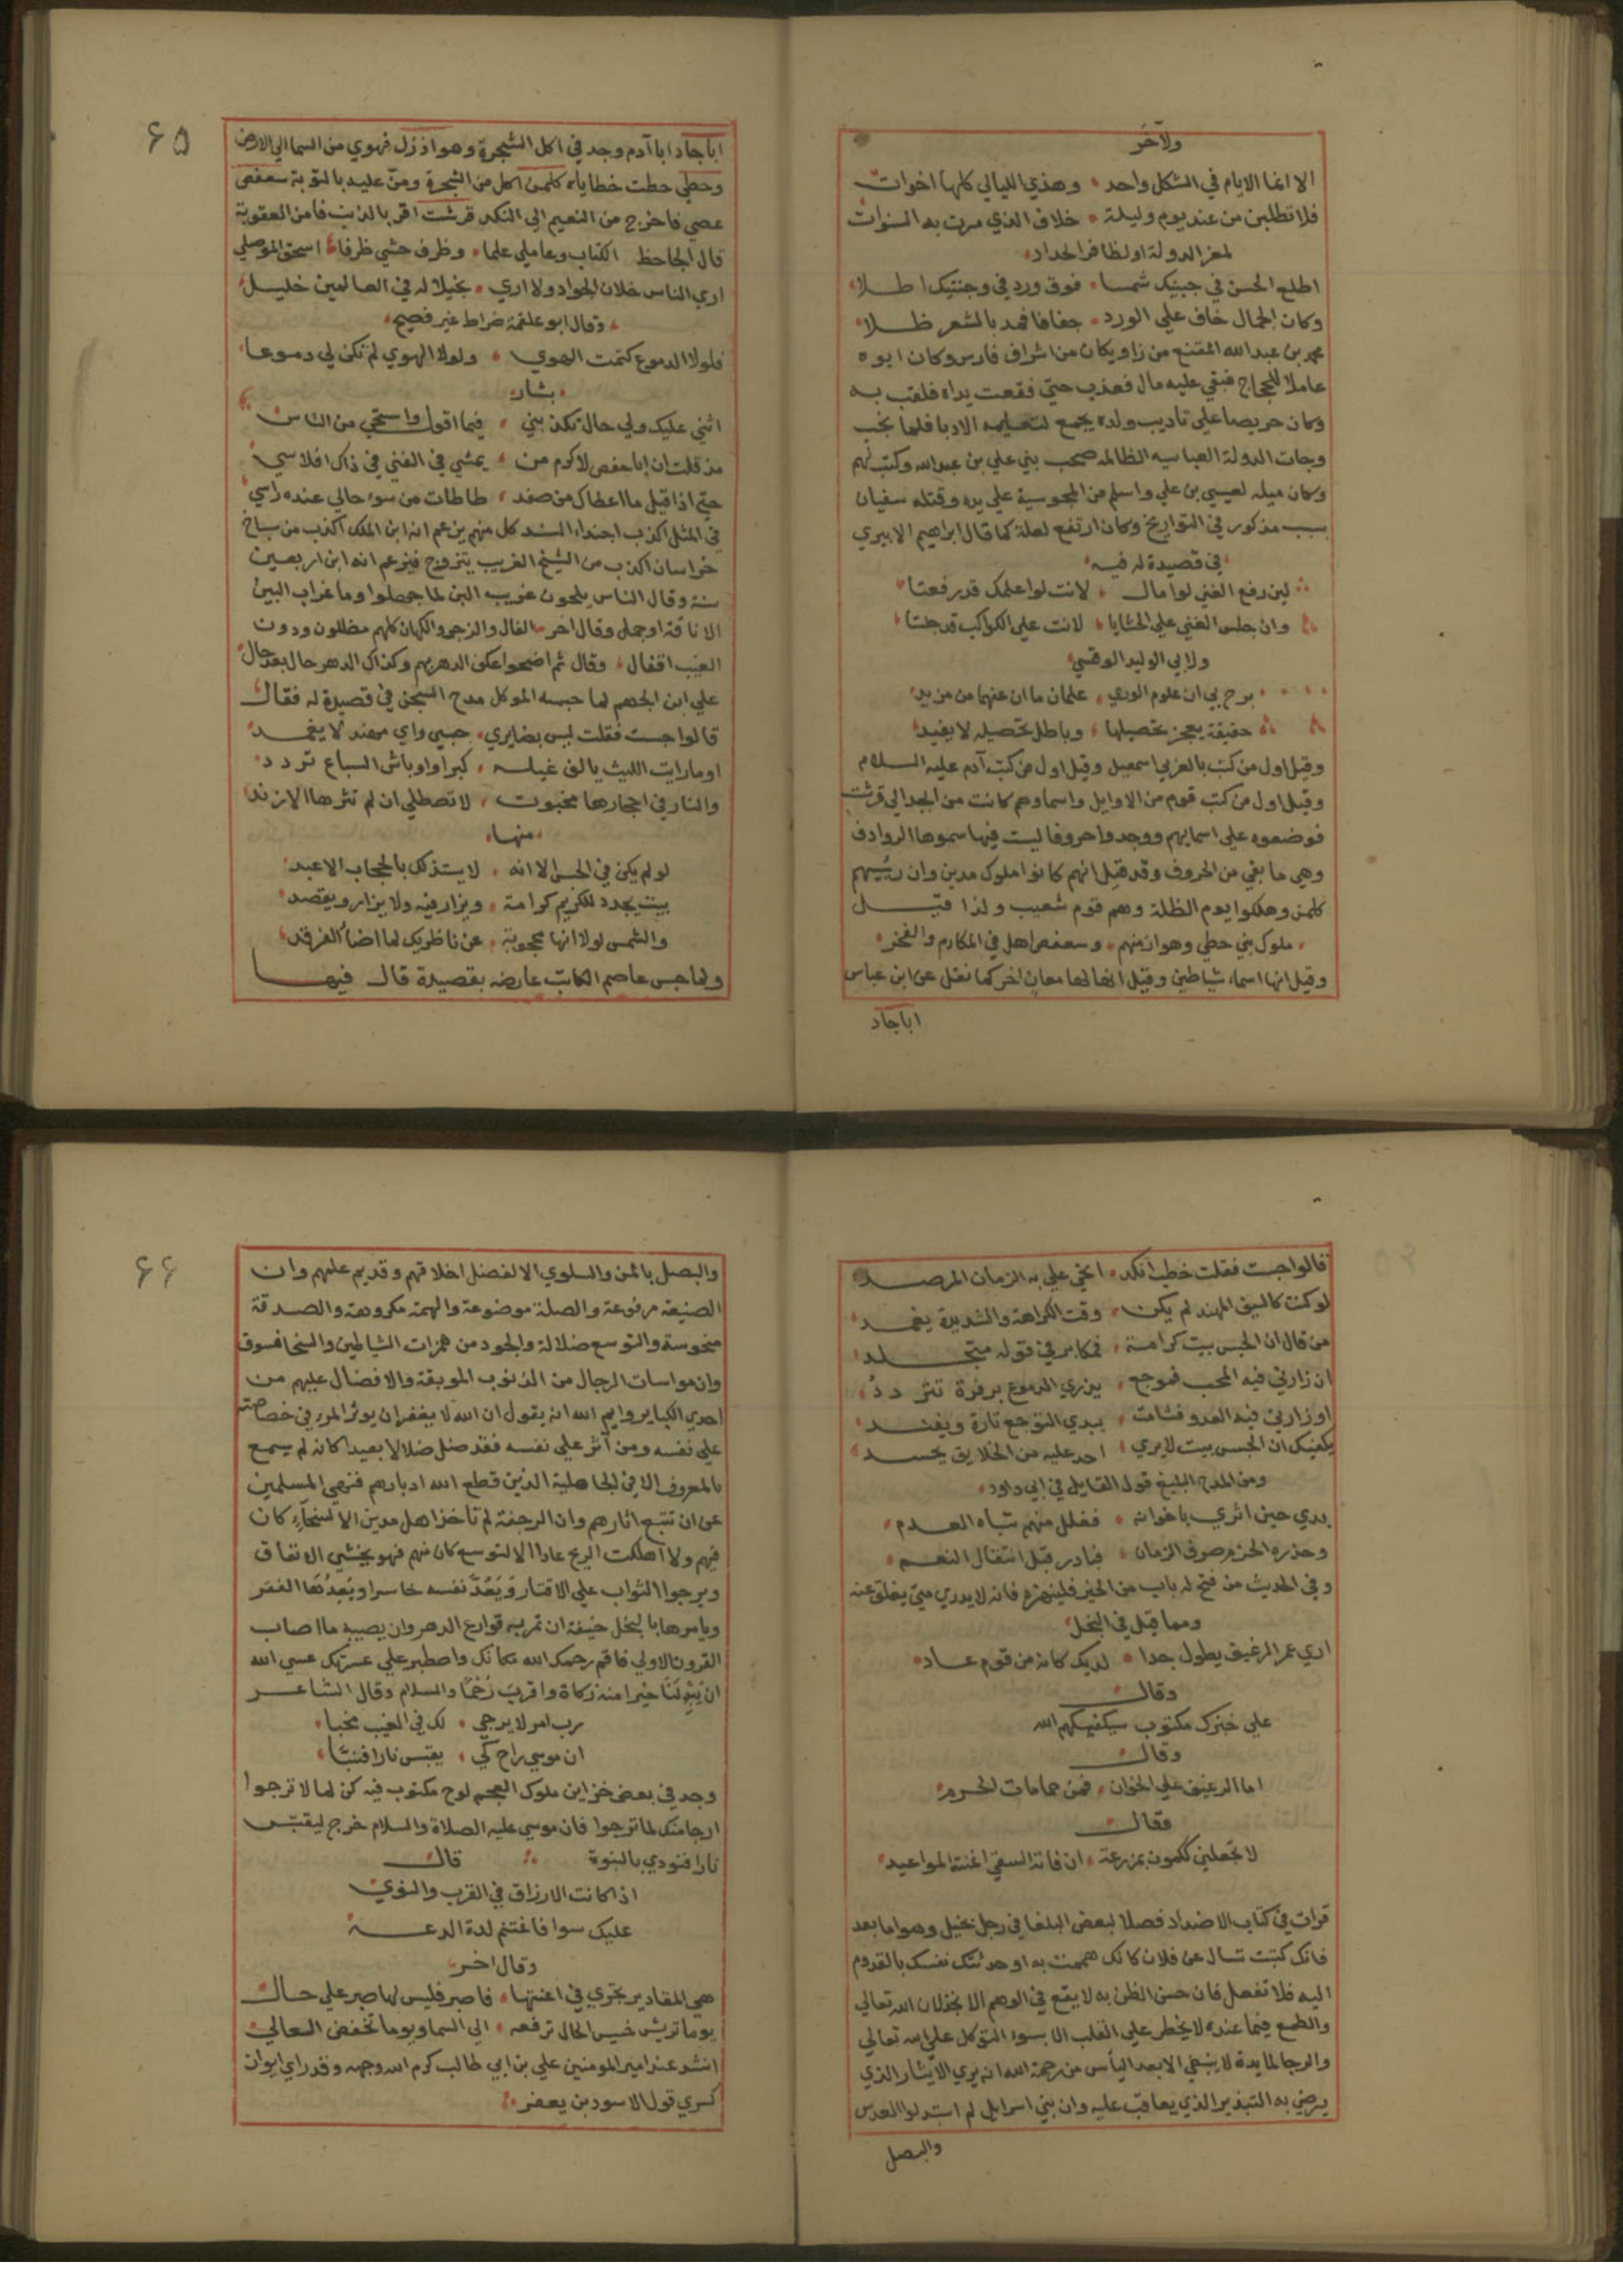 ولآخر
الا انما الايام في الشكل واحد وهذي الليالي كلها اخوات
فلا تطلبن من عند يوم وليلة خلاف الذي مرت به السنوات
لمعز الدولة او لظافر الحداد
اطلع الحسن في جبينك شمسا فوق ورد في وجنتيك اطلا
وكان الجمال خاف علي الورد جفافا فمد بالشعر ظلا
محمد بن عبدالله المقنع من زاويكان من اشراف فارس وكان ابوه
عاملا للحجاج فبقي عليه مال فعذب حتي فقعت يداه فلقب به
وكان حريصا علي تاديب ولده يجمع لتعليمه الادبا فلما نجب
وجات الدولة العباسيه الظالمه صحب بني علي بن عبدالله وكتب لهم
وكان ميله لعيسي بن علي واسلم من المجوسية علي يده وقتله سفيان
بسبب مذكور في التواريخ وكان ارتفع لعلة كما قال ابراهيم الابيري
في قصيدة له فيه
لين رفع الغني لوا مال لانت لوا علمك قد رفعتا
وان جلس الغني علي الحشايا لانت علي الكواكب قد جلستا
ولابي الوليد الوقسي
برح بي ان علوم الوري علمان ما ان عنهما من مزيد
حقيقة يعجز تحصيلها وباطل تحصيله لا يفيد
وقيل اول من كتب بالعربي اسمعيل وقيل اول من كتب آدم عليه السلام
وقيل اول من كتب قوم من الاوايل واسماوهم كانت من ابجد الي قرشت
فوضعوه علي اسمايهم ووجدوا حروفا ليست فيها سموها الروادف
وهي ما بقي من الحروف وقد قيل انهم كانوا ملوك مدين وان رئيسهم
كلمن وهلكوا يوم الظلة وهم قوم شعيب ولذا قيل
ملوك بني حطي وهواز منهم وسعفص اهل في المكارم والفخر
وقيل انها اسماء شياطين وقيل انها لها معان اخر كما نقل عن ابن عباس
اباجاد
۶۵
اباجاد ابا آدم وجد في اكل الشجرة وهواز زل فهوي من السما الي الارض
وحطي حطت خطاياه كلمن اكل من الشجرة ومنّ عليه بالتوبة سعفص
عصي فاخرج من النعيم الي النكد قرشت اقر بالذنب فامن العقوبة
قال الجاحظ الكتاب وعا ملي علما وظرف حشي ظرفا اسحق الموصلي
اري الناس خلان الجواد ولا اري بخيلا له في العالمين خليل
وقال ابو علقمة ضراط غير فصيح
فلولا الدموع كتمت الهوي ولولا الهوي لم تكن لي دموعا
بشار
اثني عليك ولي حال تكذبني فيما اقول واستحي من الناس
مذ قلت ان ابا حفص لاكرم من يمشي في الغني في ذاك افلاسي
حتي اذا قيل ما اعطاك من صفد طاطات من سوء حالي عنده راسي
في المثل اكذب اجنداء السند كل منهم يزعم انه ابن الملك اكذب من سياح
خراسان اكذب من الشيخ الغريب يتزوج فيزعم انه ابن اربعين
سنة وقال الناس يلحون غريب البن لما جهلوا وما غراب البين
الا ناقة او جمل وقال اخر الفال والزجر والكهان كلهم مضللون ودون
الغيب اقفال وقال ثم اضحوا عكف الدهر بهم وكذاك الدهر حال بعد حال
علي ابن الجهم لما حبسه الموكل مدح السجن في قصيدة له فقال
قالوا حبست فقلت ليس بضايري حبسي واي مهند لا يغمد
اومارايت الليث يالف غيله كبرا واوباش السباع تردد
والنار في احجارها مخبوت لا تصطلي ان لم تثرها الازند
منها
لو لم يكن في الحبس الا انه لا يستذلك بالحجاب الاعبد
بيت يجدد للكريم كرامة ويزار فيه ولا يزار ويقصد
والشمس لولا انها محجوبة عن ناظريك لما اضاء الفرقد
ولما حبس عاصم الكاتب عارضه بقصيدة قال فيها
قالوا حبست فقلت خطب انكد انحي علي به الزمان المرصد
لو كنت كالسيف المهند لم يكن وقت الكراهة والشديدة يغمد
من قال ان الحبس بيت كرامة فمكابر في قوله متجلد
ان زارني فيه المحب فموجع يذري الدموع بزفرة تتردد
او زارني فيه العدو فشامت يبدي التوجع تارة ويفند
يكفيك ان الحبس بيت لا يري احد عليه من الخلايق يحسد
ومن المدح البليغ قول القايل في ابي داود
بدي حين اثري باخوانه ففلل منهم شباه العدم
وحذره الحزم صرف الزمان فبادر قبل انتقال النعم
وفي الحديث من فتح له باب من الخير فلينهزه فانه لا يدري متي يغلق عنه
ومما قيل في البخل
اري عمر الرغيف يطول جدا لديك كانه من قوم عاد
وقال
علي خبزك مكتوب سيكفيكهم الله
وقال
اما الرغيف علي الخوان فمن حمامات الحرم
فقال
لا تجعلني ككمون بمزرعة ان فاته السقي اغنته المواعيد
قرات في كتاب الاضداد فصلا لبعض البلغا في رجل بخيل وهو اما بعد
فانك كتبت تسال عن فلان كانك هممت به او حدثتك نفسك بالقدوم
اليه فلا تفعل فان حسن الظن به لا يقع في الوهم الا بخذلان الله تعالي
والطمع فيما عنده لا يخطر علي القلب الا بسوء التوكل علي الله تعالي
والرجا لما يده لا ينبغي الا بعد الياس من رحمة الله انه يري الايثار الذي
يرضي به التبذير الذي يعاقب عليه وان بني اسرايل لم استبدلوا العدس
والبصل
۶۶
والبصل بالمن والسلوي الا لفضل اخلاقهم وقديم علمهم وان
الصنيعة مرفوعة والصلة موضوعة والهمة مكروهة والصدقة
منحوسة والتوسع ضلالة والجود من همزات الشياطين والسخا فسوق
وان مواسات الرجال من الذنوب الموبقة والافضال عليهم من
احدي الكباير وايم الله انه يقول ان الله لا يغفر ان يوثر المرء في خصاصته
علي نفسه ومن آثر علي نفسه فقد ضل ضلالا بعيدا كانه لم يسمع
بالمعروف الا في الجاهلية الذين قطع الله ادبارهم فنهي المسلمين
عن ان تتبع اثارهم وان الرجفة لم تاخذ اهل مدين الا لسخاء كان
فيهم ولا اهلكت الريح عادا الا لتوسع كان منهم فهو يخشي الانفاق
ويرجوا الثواب علي الاقتار ويعد نفسه خاسرا ويعدها الفقر
ويامرها بالبخل خيفة ان تمر به قوارع الدهر وان يصيبه ما اصاب
القرون الاولي فاقم رحمك الله مكانك واصطبر علي عسرتك عسي الله
ان يبدلنا خيرا منه زكاة واقرب رحما والسلام وقال الشاعر
رب امر لا يرجي لك في الغيب مخبا
ان موسي راح كي يقبس نارا فنبّا
وجد في بعض خزاين ملوك العجم لوح مكتوب فيه كن لما لا ترجوا
ارجا منك لما ترجوا فان موسي عليه الصلاة والسلام خرج ليقتبس
نارا فنودي بالنبوة قال
اذا كانت الارزاق في القرب والنوي
عليك سوا فاغتنم لذة الدعة
وقال اخر
هي المقادير تجري في اعنتها فاصبر فليس لها صبر علي حال
يوما تريش خسيس الحال ترفعه الي السما ويوما تخفض العالي
انشد عند امير المومنين علي بن ابي طالب كرم الله وجهه وقد راي ايوان
كسري قول الاسود بن يعفر